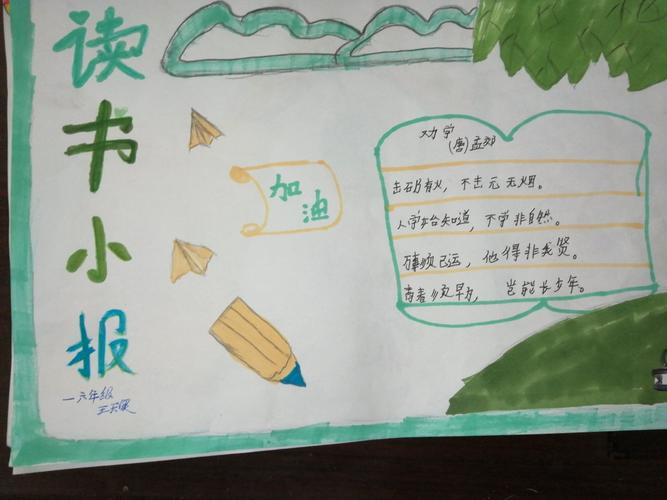 读书小报
一六年级
加油
劝学
(唐)孟郊
击石乃有火，不击元无烟。
人学始知道，不学非自然。
万事须己运，他得非我贤。
青春须早为，岂能长少年。